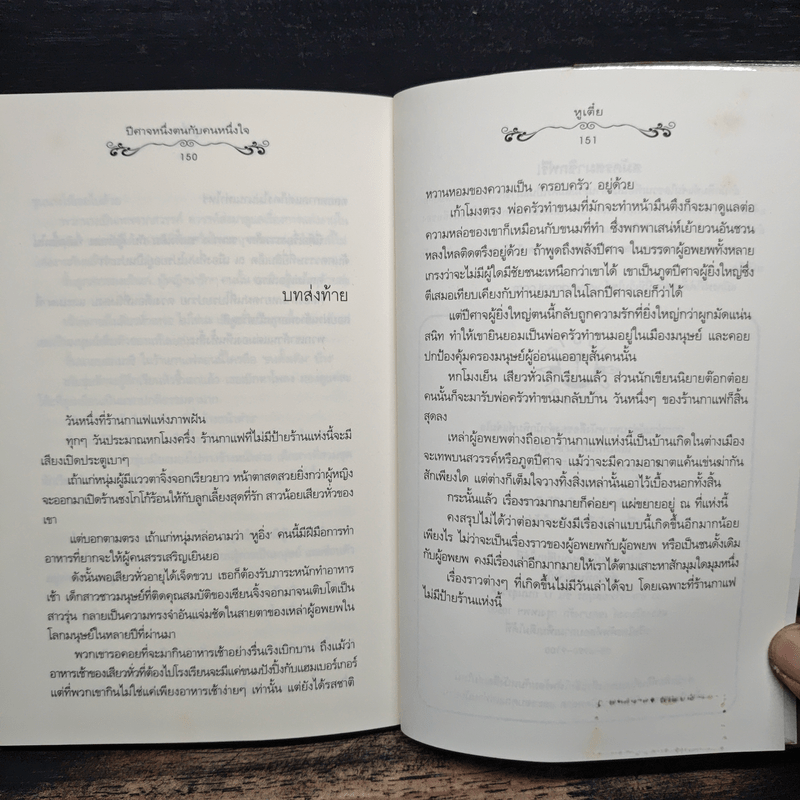 ปีศาจหนึ่งตนกับคนหนึ่งใจ
150
บทส่งท้าย
วันหนึ่งที่ร้านกาแฟแห่งภาพฝัน
ทุกๆ วันประมาณหกโมงครึ่ง ร้านกาแฟที่ไม่มีป้ายร้านแห่งนี้จะมี
เสียงเปิดประตูเบาๆ
เถ้าแก่หนุ่มผู้มีแววตาจิ้งจอกเรียวยาว หน้าตาสดสวยยิ่งกว่าผู้หญิง
จะออกมาเปิดร้านชงโกโก้ร้อนให้กับลูกเลี้ยงสุดที่รัก สาวน้อยเสียวหั่วของ
เขา
แต่บอกตามตรง เถ้าแก่หนุ่มหล่อนามว่า 'หูอิ่ง' คนนี้มีฝีมือการทำ
อาหารที่ยากจะให้ผู้คนสรรเสริญเยินยอ
ดังนั้นพอเสียวหั่วอายุได้เจ็ดขวบ เธอก็ต้องรับภาระหนักทำอาหาร
เช้า เด็กสาวชาวมนุษย์ที่ติดคุณสมบัติของเซียนจิ้งจอกมาจนเติบโตเป็น
สาวรุ่น กลายเป็นความทรงจำอันแจ่มชัดในสายตาของเหล่าผู้อพยพใน
โลกมนุษย์ในหลายปีที่ผ่านมา
พวกเขารอคอยที่จะมากินอาหารเช้าอย่างรื่นเริงเบิกบาน ถึงแม้ว่า
อาหารเช้าของเสียวหั่วที่ต้องไปโรงเรียนจะมีแค่ขนมปังปิ้งกับแฮมเบอร์เกอร์
แต่ที่พวกเขากินไม่ใช่แค่เพียงอาหารเช้าง่ายๆ เท่านั้น แต่ยังได้รสชาติ
หูเตี๋ย
151
หวานหอมของความเป็น 'ครอบครัว' อยู่ด้วย
เก้าโมงตรง พ่อครัวทำขนมที่มักจะทำหน้ามืนตึงก็จะมาดูแลต่อ
ความหล่อของเขาก็เหมือนกับขนมที่ทำ ซึ่งพกพาเสน่ห์เย้ายวนอันชวน
หลงใหลติดตรึงอยู่ด้วย ถ้าพูดถึงพลังปีศาจ ในบรรดาผู้อพยพทั้งหลาย
เกรงว่าจะไม่มีผู้ใดมีชัยชนะเหนือกว่าเขาได้ เขาเป็นภูตปีศาจผู้ยิ่งใหญ่ซึ่ง
ตีเสมอเทียบเคียงกับท่านยมบาลในโลกปีศาจเลยก็ว่าได้
แต่ปีศาจผู้ยิ่งใหญ่ตนนี้กลับถูกความรักที่ยิ่งใหญ่กว่าผูกมัดแน่น
สนิท ทำให้เขายินยอมเป็นพ่อครัวทำขนมอยู่ในเมืองมนุษย์ และคอย
ปกป้องคุ้มครองมนุษย์ผู้อ่อนแออายุสั้นคนนั้น
หกโมงเย็น เสียวหั่วเลิกเรียนแล้ว ส่วนนักเขียนนิยายต๊อกต๋อย
คนนั้นก็จะมารับพ่อครัวทำขนมกลับบ้าน วันหนึ่งๆ ของร้านกาแฟก็สิ้น
สุดลง
เหล่าผู้อพยพต่างถือเอาร้านกาแฟแห่งนี้เป็นบ้านเกิดในต่างเมือง
จะเทพบนสวรรค์หรือภูตปีศาจ แม้ว่าจะมีความอาฆาตแค้นเข่นฆ่ากัน
สักเพียงใด แต่ต่างก็เต็มใจวางทิ้งสิ่งเหล่านั้นเอาไว้เบื้องนอกทั้งสิ้น
กระนั้นแล้ว เรื่องราวมากมายก็ค่อยๆ แผ่ขยายอยู่ ณ ที่แห่งนี้
คงสรุปไม่ได้ว่าต่อมาจะยังมีเรื่องเล่าแบบนี้เกิดขึ้นอีกมากน้อย
เพียงไร ไม่ว่าจะเป็นเรื่องราวของผู้อพยพกับผู้อพยพ หรือเป็นชนดั้งเดิม
กับผู้อพยพ คงมีเรื่องเล่าอีกมากมายให้เราได้ตามเสาะหาสักมุมใดมุมหนึ่ง
เรื่องราวต่างๆ ที่เกิดขึ้นไม่มีวันเล่าได้จบ โดยเฉพาะที่ร้านกาแฟ
ไม่มีป้ายร้านแห่งนี้